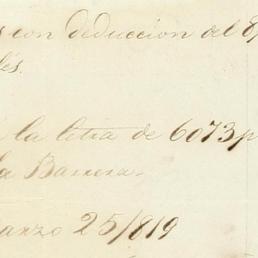 con deduccion del 8
és.
la letra de 6073 p
la Barrera.
arzo 25/819